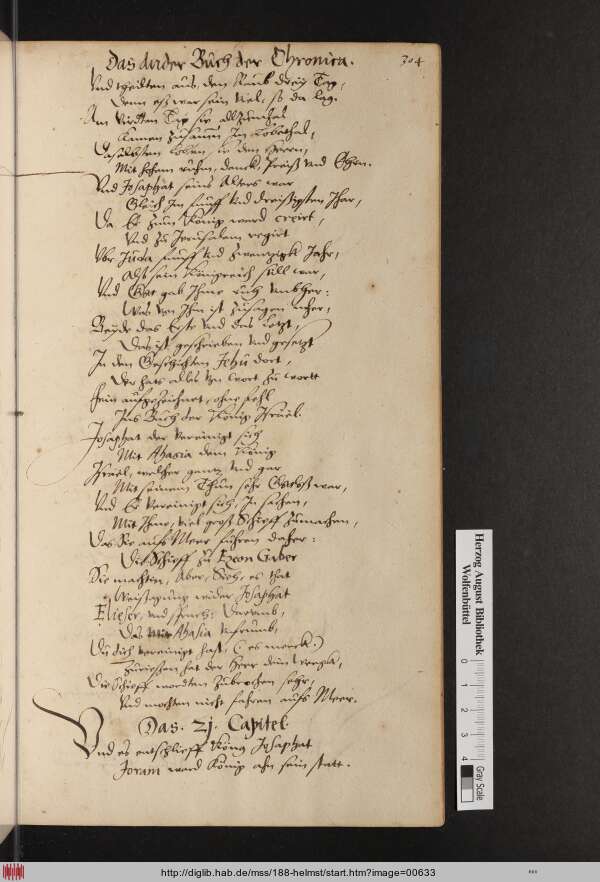 Das ander Buch der Chronica.
304
Vnd theilten aus, den Raub drey Tag,
Denn es war sein viel, so da lag.
Am vierdten Tag sie allzumahl
Kamen zusamm Im Lobethal,
Daselbsten loben sie den Herrn,
Mit hohem ruhm, danck, Preiß vnd Ehrn.
Vnd Josaphat seins Alters war
Gleich Im funff vnd dreissigsten Jhar,
Da Er zum König ward creirt,
Vnd zu Jerusalem regirt
Vber Juda funff vnd zwenzigk Jahr,
Alß sein Königreich still war,
Vnd Gott gab Ihme ruh vmbher:
Was von Ihm ist zusagen mher,
Beyde das Erste vnd das Letzt,
Das ist geschrieben vnd gesetzt
In den Geschichten Jehu dort,
Der hats alles von wort zu wortt
Fein aufgezeichnet, ohne fehl
Ins Buch der König Israel.
Josaphat der vereinigt sich
Mit Ahasia dem König
Israel, welcher ganz vnd gar
Mit seinem Thun sehr Gottloß war,
Vnd Er vereinigt sich, In sachen,
Mit Ihme, viel groß Schieff zumachen,
Das Sie aufs Meer fuhren daher:
Die Schieff zu Ezeon Geber
Sie machten, Aber, Sieh, es that
Weissagung wider Josaphat
Elieser, vnd sprach: Darumb,
Das Ahasia
Du dich vereinigt hast, (es merck.)
Zurissen hat der Herr dein werck,
Die Schieff wordten zubrochen sehr,
Vnd mochten nicht fahren aufs Meer.
Das. 21. Capitel
Vnd es entschlieff König Josaphat
Joram ward König ahn sein statt.
Herzog August Bibliothek
Wolfenbüttel
0 1 2 3 4
Gray Scale
http://diglib.hab.de/mss/188-helmst/start.htm?image=00633